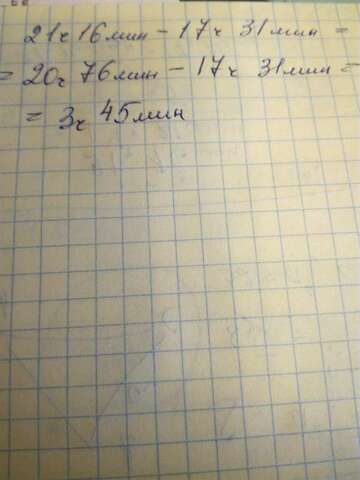 21ч 16мин - 17ч 31мин =
= 20ч 76мин - 17ч 31мин =
= 3ч 45мин